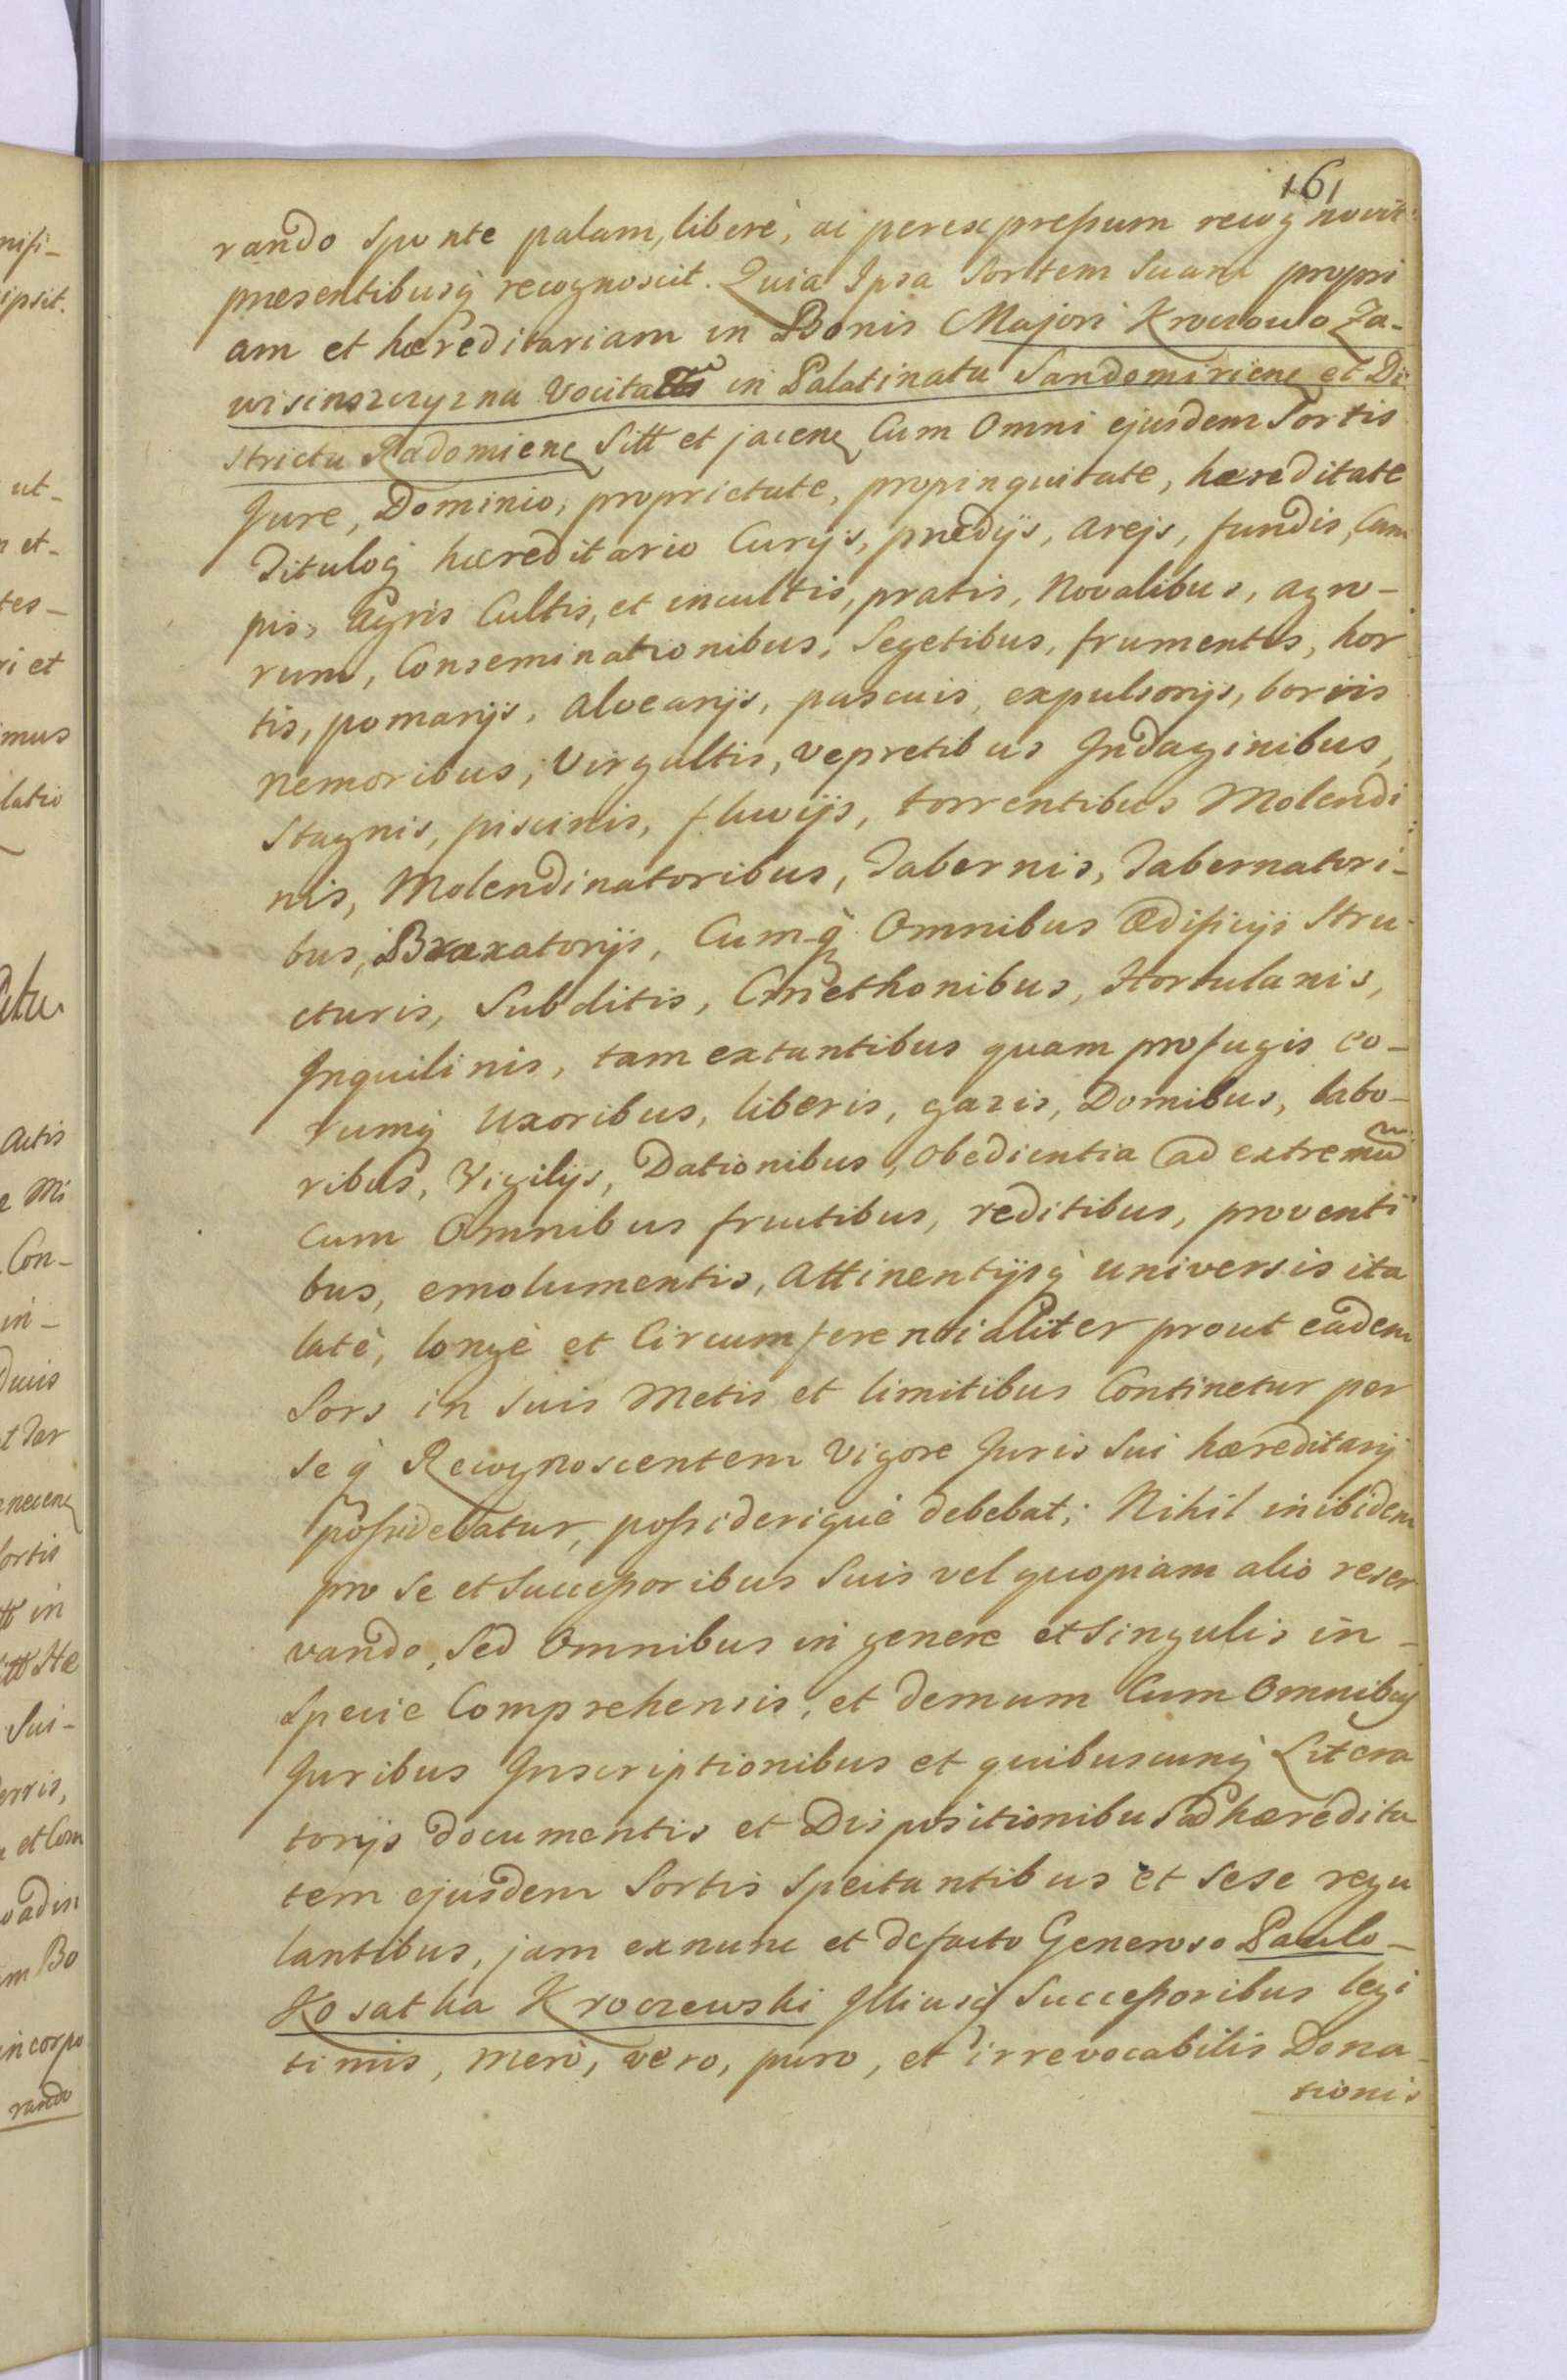 161
rando Sponte palam, liberè, ac perexpressum recognovit
præsentibusq recognoscit. Quia Ipsa Sortem Suam propri
am et hæreditariam in Bonis Majori Kroczowo Za-
wisinszczyzna Vocita in Palatinatu Sandomirien et Di
strictu Radomien Sitt et jacen Cum Omni ejusdem Sortis
Jure, Dominio, proprietate, propinquitate, hæreditate
Tituloq hæreditario Curijs, prædijs, arejs, fundis, Cam
pis, agris Cultis, et incultis, pratis, Novalibus, agro-
rum, Conseminationibus, Segetibus, frumentis, hor
tis, pomarijs, alvearijs, pascuis, expulsorijs, borris
Nemoribus, Virgultis, vepretibus Indaginibus,
Stagnis, piscinis, fluvijs, torrentibus Molendi
nis, Molendinatoribus, Tabernis, Tabernatori-
bus, Braxatorijs, Cum-q Omnibus Ædificijs Stru-
cturis, Subditis, Cmethonibus, Hortulanis,
Inquilinis, tam extantibus quam profugis eo-
rumq Uxoribus, liberis, gazis, Domibus, labo-
ribus, Vigilijs, Dationibus, obedientia ad extremū
Cum Omnibus fructibus, reditibus, proventi
bus, emolumentis, attinentijsq universis ita
latè, longè et Circumferentialiter prout eadem
Sors in suis Metis et limitibus Continetur per
se q Recognoscentem Vigore Juris Sui hæreditarij
possidebatur, possideriquè debebat; Nihil inibidem
pro Se et Successoribus Suis vel quopiam alio reser
vando, Sed Omnibus in genere et Singulis in-
Specie Comprehensis, et demum Cum Omnibus
Juribus Inscriptionibus et quibuscunq Litera
torijs documentis et Dispositionibus ad hæredita
tem ejusdem Sortis Spectantibus et Sese regu
lantibus, jam exnunc et defacto Generoso Paulo-
Kosatka Kroczewski Illiusq Successoribus legi
timis, merò, vero, puro, et irrevocabilis Dona-
tionis